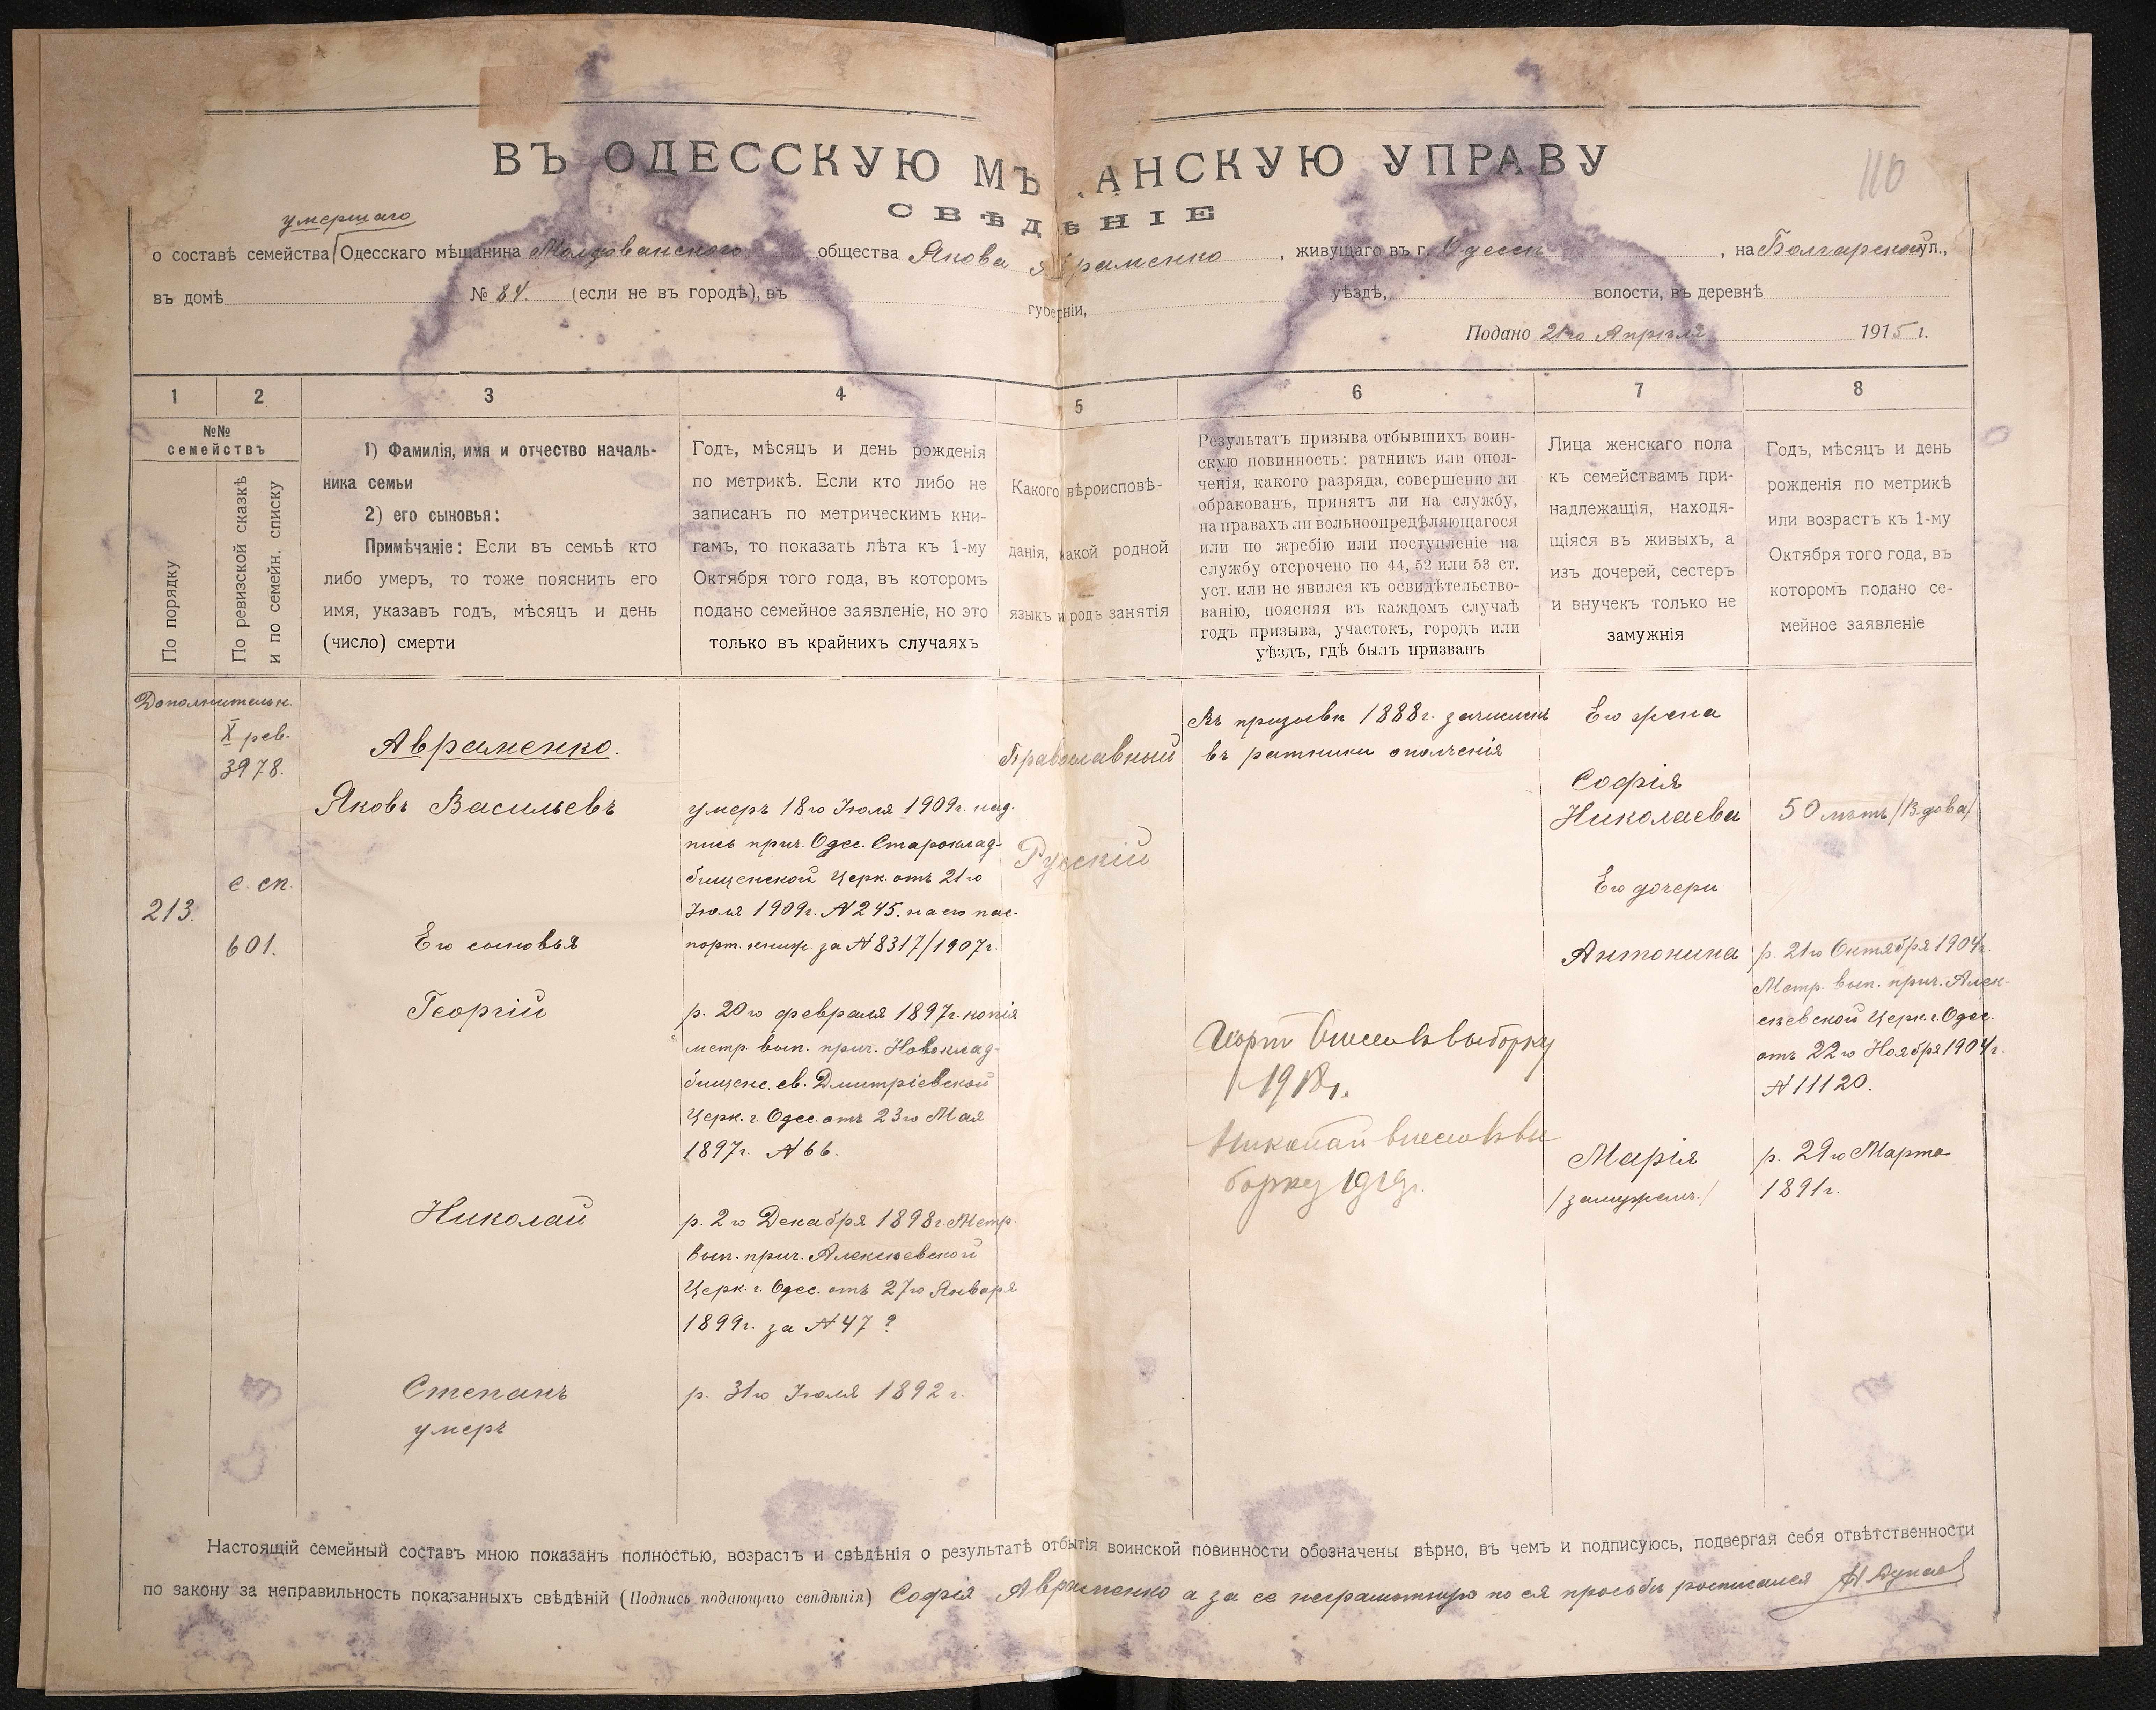 110
ВЪ ОДЕССКУЮ МѢ АНСКУЮ УПРАВУ
СВѢДѢНІЕ
умершаго
о составѣ семейства Одесскаго мѣщанина Молдованскаго общества Якова Авраменко, живущаго въ г. Одессѣ, на Болгарской ул.,
въ домѣ № 84. (если не въ городѣ), въ губерніи, уѣздѣ, волости, въ деревнѣ
Подано 21го Апрѣля 1915 г.
1 2 3 4 5 6 7 8
№№
семействъ
По порядку
По ревизской сказкѣ
и по семейн. списку
1) Фамилія, имя и отчество началь-
ника семьи
2) его сыновья:
Примѣчаніе: Если въ семьѣ кто
либо умеръ, то тоже пояснить его
имя, указавъ годъ, мѣсяцъ и день
(число) смерти
Годъ, мѣсяцъ и день рожденія
по метрикѣ. Если кто либо не
записанъ по метрическимъ кни-
гамъ, то показать лѣта къ 1-му
Октября того года, въ которомъ
подано семейное заявленіе, но это
только въ крайнихъ случаяхъ
Какого вѣроисповѣ-
данія, какой родной
языкъ и родъ занятія
Результатъ призыва отбывшихъ воин-
скую повинность: ратникъ или опол-
ченія, какого разряда, совершенно ли
обракованъ, принятъ ли на службу,
на правахъ ли вольноопредѣляющагося
или по жребію или поступленіе на
службу отсрочено по 44, 52 или 53 ст.
уст. или не явился къ освидѣтельство-
ванію, поясняя въ каждомъ случаѣ
годъ призыва, участокъ, городъ или
уѣздъ, гдѣ былъ призванъ
Лица женскаго пола
къ семействамъ при-
надлежащія, находя-
щіяся въ живыхъ, а
изъ дочерей, сестеръ
и внучекъ только не
замужнія
Годъ, мѣсяцъ и день
рожденія по метрикѣ
или возрастъ къ 1-му
Октября того года, въ
которомъ подано се-
мейное заявленіе
Дополнительн.
X рев.
3978.
213.
с. сп.
601.
Авраменко.
Яковъ Васильевъ
Его сыновья
Георгій
Николай
Степанъ
умеръ
умеръ 18го Іюля 1909г. над-
пись прич. Одес. Староклад-
бищенской Церк. отъ 21го
Іюля 1909г. № 245. на его пас-
порт. книж. за № 8317/1907г.
р. 20го февраля 1897г. копія
метр. вып. прич. Новоклад-
бищенс. св. Дмитріевской
Церк. г. Одес. отъ 23го Мая
1897г. № 66.
р. 2го Декабря 1898г. Метр.
вып. прич. Алексѣевской
Церк. г. Одес. отъ 27го Января
1899г. за № 47 ?
р. 31го Іюля 1892 г.
Православный
Русскій
Въ призывѣ 1888г. зачисленъ
въ ратники ополченія
внесенъ въ выборку
1918г.
Николай внесенъ въ вы
борку 1919г.
Его жена
Софія
Николаева
Его дочери
Антонина
Марія
/замужемъ/
50 лѣтъ /Вдова/
р. 21го Октября 1904г.
Метр. вып. прич. Алек-
сѣевской Церк. г. Одес.
отъ 22го Ноября 1904г.
№ 11120.
р. 29го Марта
1891г.
Настоящій семейный составъ мною показанъ полностью, возрастъ и свѣдѣнія о результатѣ отбытія воинской повинности обозначены вѣрно, въ чемъ и подписуюсь, подвергая себя отвѣтственности
по закону за неправильность показанныхъ свѣдѣній (Подпись подающаго свѣдѣнія) Софія Авраменко а за ее неграмотную по ея просьбѣ росписался